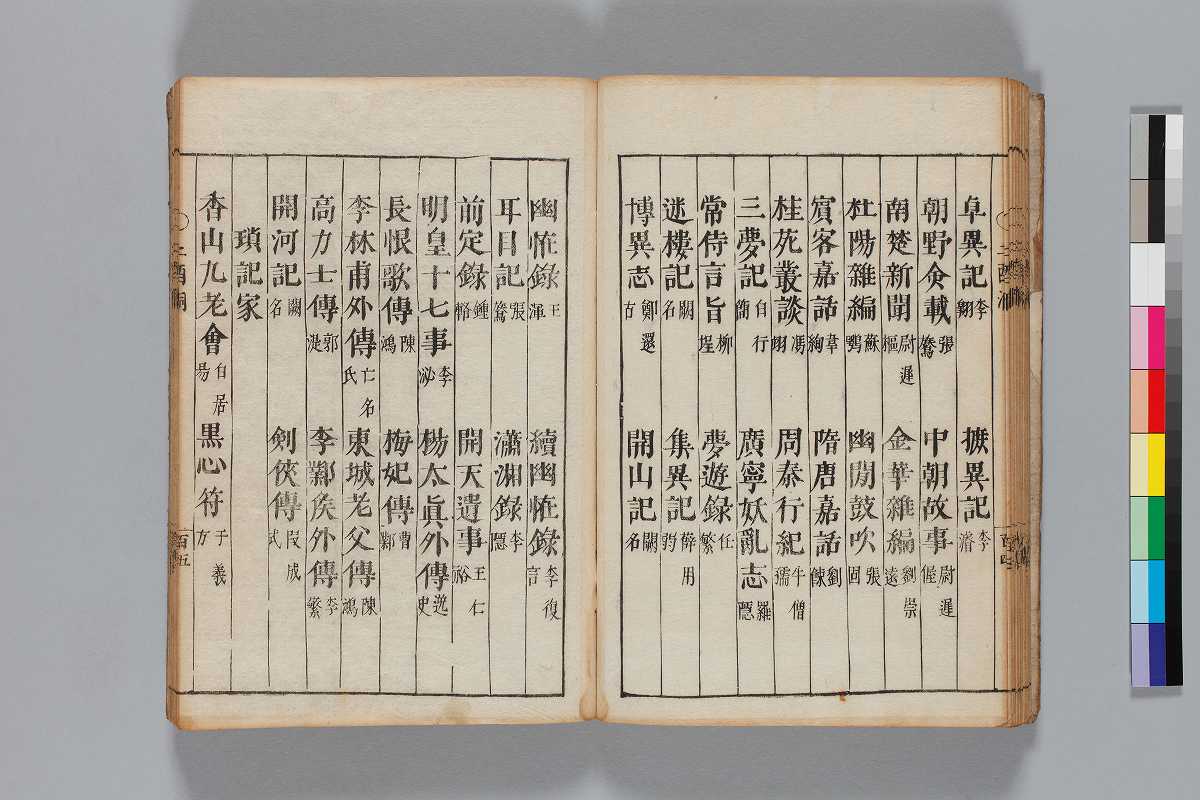 卓異記 李翺 摭異記 李濬
朝野僉載 張鷟 中朝故事 尉遲偓
南楚新聞 尉遲樞 金華雜編 劉崇遠
杜陽雜編 蘇鶚 幽閒鼓吹 張固
賓客嘉話 韋絢 隋唐嘉話 劉餗
桂苑叢談 馮翊 周秦行紀 牛僧孺
三夢記 白行簡 廣寧妖亂志 羅隱
常侍言旨 柳珵 夢遊錄 任繁
迷樓記 闕名 集異記 薛用弱
博異志 鄭還古 開山記 闕名
幽恠錄 王渾 續幽恠錄 李復言
耳目記 張鷟 瀟湘錄 李隱
前定錄 鍾輅 開天遺事 王仁裕
明皇十七事 李泌 楊太眞外傳 逸史
長恨歌傳 陳鴻 梅妃傳 曹鄴
李林甫外傳 亡名氏 東城老父傳 陳鴻
高力士傳 郭湜 李鄴侯外傳 李繁
開河記 闕名 劍俠傳 段成式
瑣記家
香山九老會 白居易 黑心符 于義方
二酉洞
百五